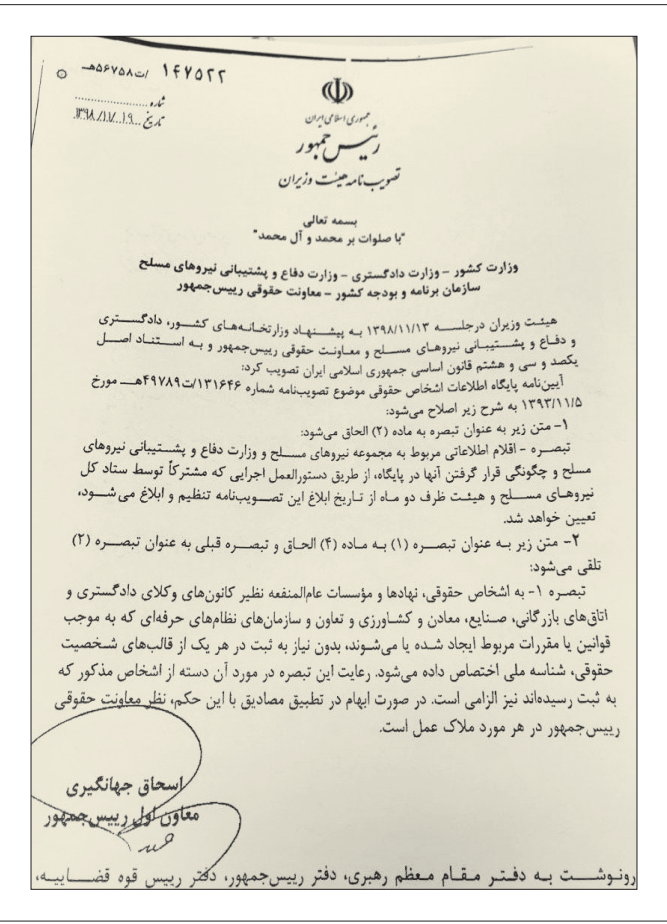 ۱۴۷۵۲۲ /ت۵۶۷۵۸هـ
شماره
تاریخ ۱۳۹۸/۱۱/۱۹
جمهوری اسلامی ایران
رئیس جمهور
تصویب نامه هیئت وزیران
بسمه تعالی
"با صلوات بر محمد و آل محمد"
وزارت کشور – وزارت دادگستری – وزارت دفاع و پشتیبانی نیروهای مسلح
سازمان برنامه و بودجه کشور – معاونت حقوقی رییس‌جمهور
هیئت وزیران درجلسه ۱۳۹۸/۱۱/۱۳ به پیشنهاد وزارتخانه‌های کشور، دادگستری
و دفاع و پشتیبانی نیروهای مسلح و معاونت حقوقی رییس‌جمهور و به استناد اصل
یکصد و سی و هشتم قانون اساسی جمهوری اسلامی ایران تصویب کرد:
آیین‌نامه پایگاه اطلاعات اشخاص حقوقی موضوع تصویب‌نامه شماره ۱۳۱۶۴۶/ت۴۹۷۸۹هـ مورخ
۱۳۹۳/۱۱/۵ به شرح زیر اصلاح می‌شود:
۱– متن زیر به عنوان تبصره به ماده (۲) الحاق می‌شود:
تبصره – اقلام اطلاعاتی مربوط به مجموعه نیروهای مسلح و وزارت دفاع و پشتیبانی نیروهای
مسلح و چگونگی قرار گرفتن آنها در پایگاه، از طریق دستورالعمل اجرایی که مشترکاً توسط ستاد کل
نیروهای مسلح و هیئت ظرف دو ماه از تاریخ ابلاغ این تصویب‌نامه تنظیم و ابلاغ می شود،
تعیین خواهد شد.
۲– متن زیر به عنوان تبصره (۱) به ماده (۴) الحاق و تبصره قبلی به عنوان تبصره (۲)
تلقی می‌شود:
تبصره ۱– به اشخاص حقوقی، نهادها و مؤسسات عام‌المنفعه نظیر کانون‌های وکلای دادگستری و
اتاق‌های بازرگانی، صنایع، معادن و کشاورزی و تعاون و سازمان‌های نظام‌های حرفه‌ای که به موجب
قوانین یا مقررات مربوط ایجاد شده یا می‌شوند، بدون نیاز به ثبت در هر یک از قالب‌های شخصیت
حقوقی، شناسه ملی اختصاص داده می‌شود. رعایت این تبصره در مورد آن دسته از اشخاص مذکور که
به ثبت رسیده‌اند نیز الزامی است. در صورت ابهام در تطبیق مصادیق با این حکم، نظر معاونت حقوقی
رییس‌جمهور در هر مورد ملاک عمل است.
اسحاق جهانگیری
معاون اول رییس‌جمهور
رونوشت به دفتر مقام معظم رهبری، دفتر رییس‌جمهور، دفتر رییس قوه قضاییه،